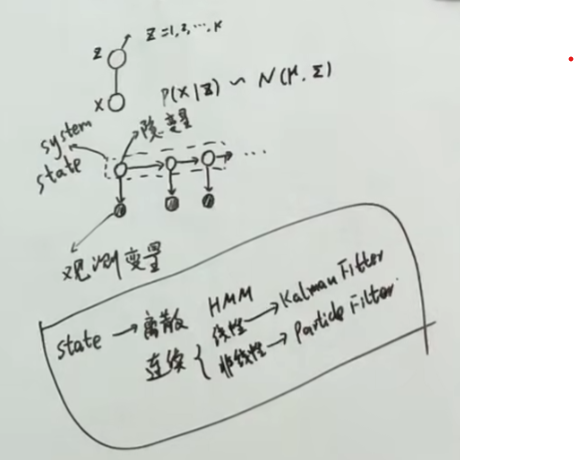 z z=1,2,…,k
x P(x|z) ∽ N(μ,Σ)
system state 隐变量
…
观测变量
state → 离散 HMM
连续 { 线性 → Kalman Filter
非线性 → Particle Filter